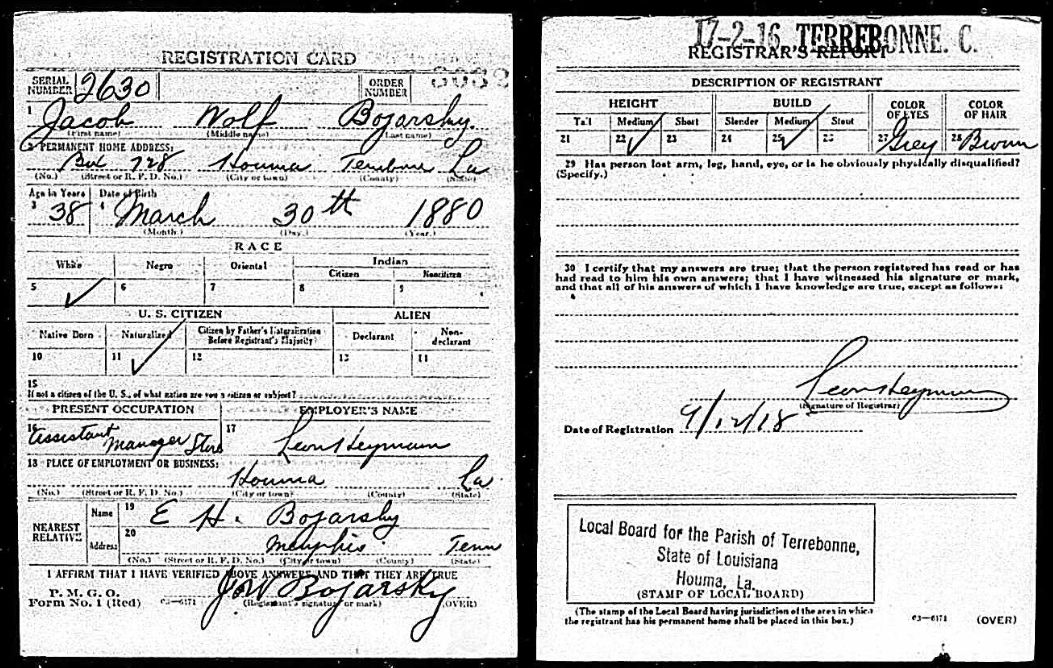 REGISTRATION CARD
SERIAL NUMBER 2630 ORDER NUMBER
1 Jacob Wolf Bojarsky
(First name) (Middle name) (Last name)
2 PERMANENT HOME ADDRESS:
Box 728 Houma Terrebone La
(No.) (Street or R. F. D. No.) (City or town) (County) (State)
Age in Years Date of Birth
3 38 4 March 30th 1880
(Month.) (Day.) (Year.)
RACE
White Negro Oriental Indian
Citizen Noncitizen
5 6 7 8 9
U. S. CITIZEN ALIEN
Native Born Naturalized Citizen by Father's Naturalization Before Registrant's Majority Declarant Non-declarant
10 11 12 13 14
15
If not a citizen of the U. S., of what nation are you a citizen or subject?
PRESENT OCCUPATION EMPLOYER'S NAME
16 Assistant Manager Store 17 Leon Heymann
18 PLACE OF EMPLOYMENT OR BUSINESS:
Houma La
(No.) (Street or R. F. D. No.) (City or town) (County) (State)
NEAREST RELATIVE
Name 19 E H. Bojarsky
Address 20 Memphis Tenn
(No.) (Street or R. F. D. No.) (City or town) (County) (State)
I AFFIRM THAT I HAVE VERIFIED ABOVE ANSWERS AND THAT THEY ARE TRUE
P. M. G. O.
Form No. 1 (Red) 03—6171 J W Bojarsky
(Registrant's signature or mark) (OVER)
17-2-16 TERREBONNE. C.
REGISTRAR'S REPORT
DESCRIPTION OF REGISTRANT
HEIGHT BUILD COLOR OF EYES COLOR OF HAIR
Tall Medium Short Slender Medium Stout
21 22 23 24 25 26 27 Grey 28 Brown
29 Has person lost arm, leg, hand, eye, or is he obviously physically disqualified?
(Specify.)
30 I certify that my answers are true; that the person registered has read or has
had read to him his own answers; that I have witnessed his signature or mark,
and that all of his answers of which I have knowledge are true, except as follows:
Leon Heymann
(Signature of Registrar)
Date of Registration 9/12/18
Local Board for the Parish of Terrebonne,
State of Louisiana
Houma, La.
(STAMP OF LOCAL BOARD)
(The stamp of the Local Board having jurisdiction of the area in which
the registrant has his permanent home shall be placed in this box.)
03—6171 (OVER)